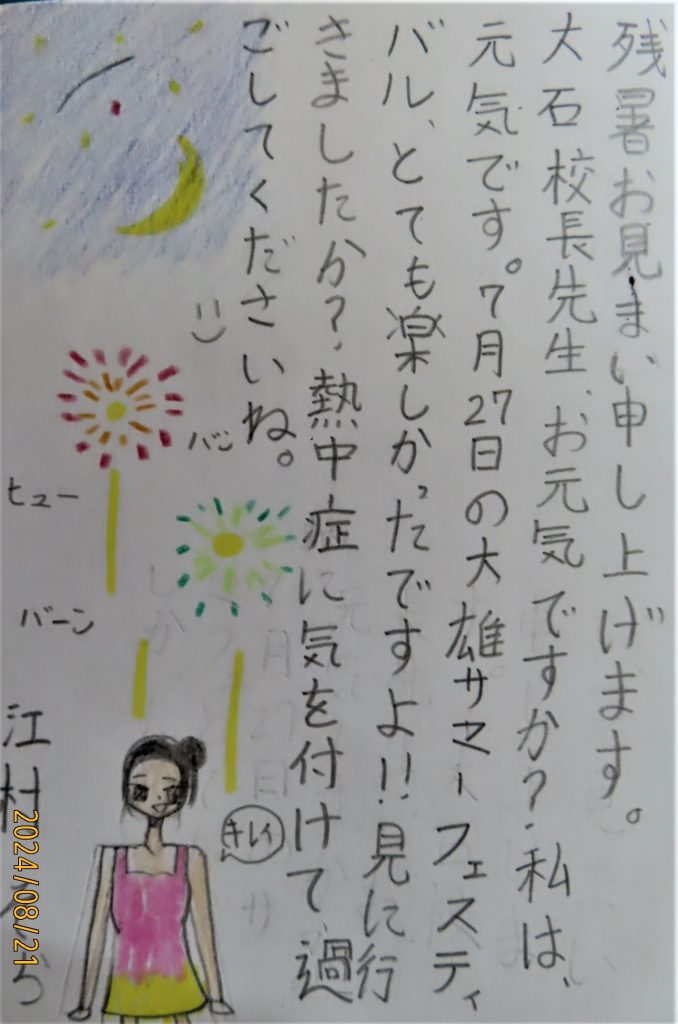 残暑お見まい申し上げます。
大石校長先生、お元気ですか?私は、
元気です。7月27日の大雄サマーフェスティ
バル、とても楽しかったですよ!!見に行
きましたか?熱中症に気を付けて過
ごしてくださいね。
バン
ヒュー
バーン
キレイ
江村
2024/08/21